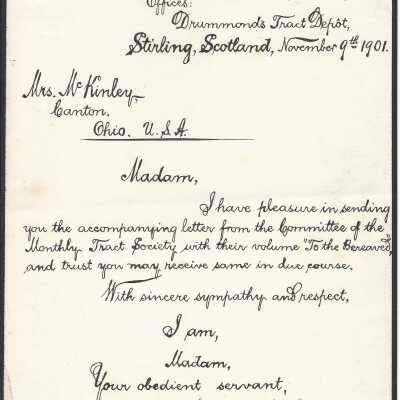 Offices:
Drummond's Tract Depôt,
Stirling, Scotland, November 9th 1901.
Mrs. McKinley,
Canton.
Ohio. U.S.A.
Madam,
I have pleasure in sending
you the accompanying letter from the Committee of the
Monthly Tract Society with their volume "To the Bereaved",
and trust you may receive same in due course.
With sincere sympathy and respect,
I am,
Madam,
Your obedient servant,